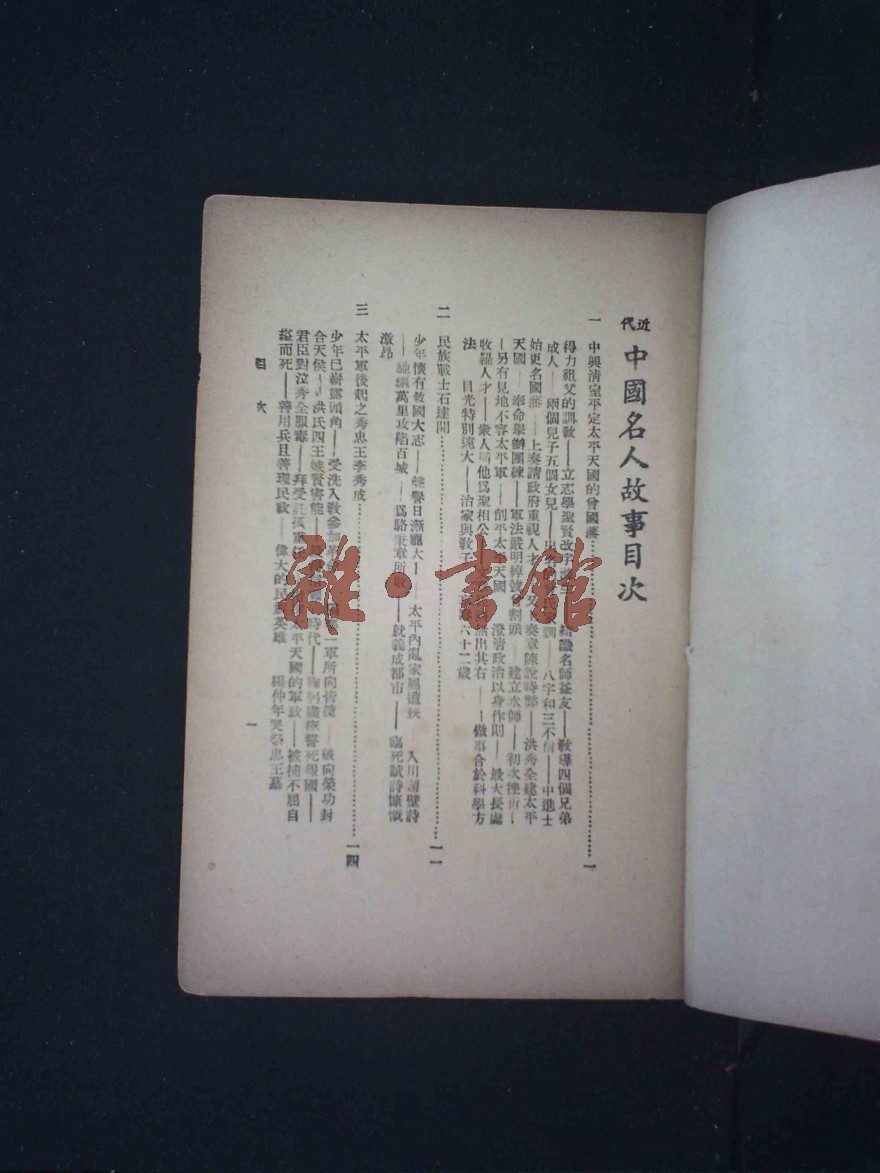 近代 中國名人故事目次
一 中興清室平定太平天國的曾國藩……一
得力祖父的訓敎——立志學聖賢改字 結識名師益友——敎導四個兄弟
成人——兩個兒子五個女兒—— 訓——八字和三不信——中進士
始更名國藩——上奏請政府重視人才 奏章陳說時弊——洪秀全建太平
天國——奉命舉辦團練——軍法嚴明綽號曾剃頭——建立水師——初次挫折—
—另有見地不容太平軍——創平太平天國——澄淸政治以身作則——最大長處
收羅人才——衆人 他爲聖相公 無出其右——做事合於科學方
法 目光特別遠大——治家與敎子 六十二歲
二 民族戰士石達開……一一
少年懷有救國大志——聲譽日漸龐大——太平內亂家屬遭殃 入川 壁詩
——馳驅萬里攻陷百城——爲駱秉章所敗——就義成都市——臨死賦詩慷慨
激昂
三 太平軍後起之秀忠王李秀成……一四
少年已嶄露頭角——受洗入敎參加革命 一軍所向皆 ——破向榮功封
合天侯——洪氏四王嫉賢害能—— 時代——鞠躬盡瘁誓死報國——
君臣對泣秀全服毒——拜受託孤重 太平天國的軍政——被捕不屈自
縊而死——善用兵且善理民政——偉大的民族英雄 楊仲年哭祭忠王墓
目次
一
雜·書館